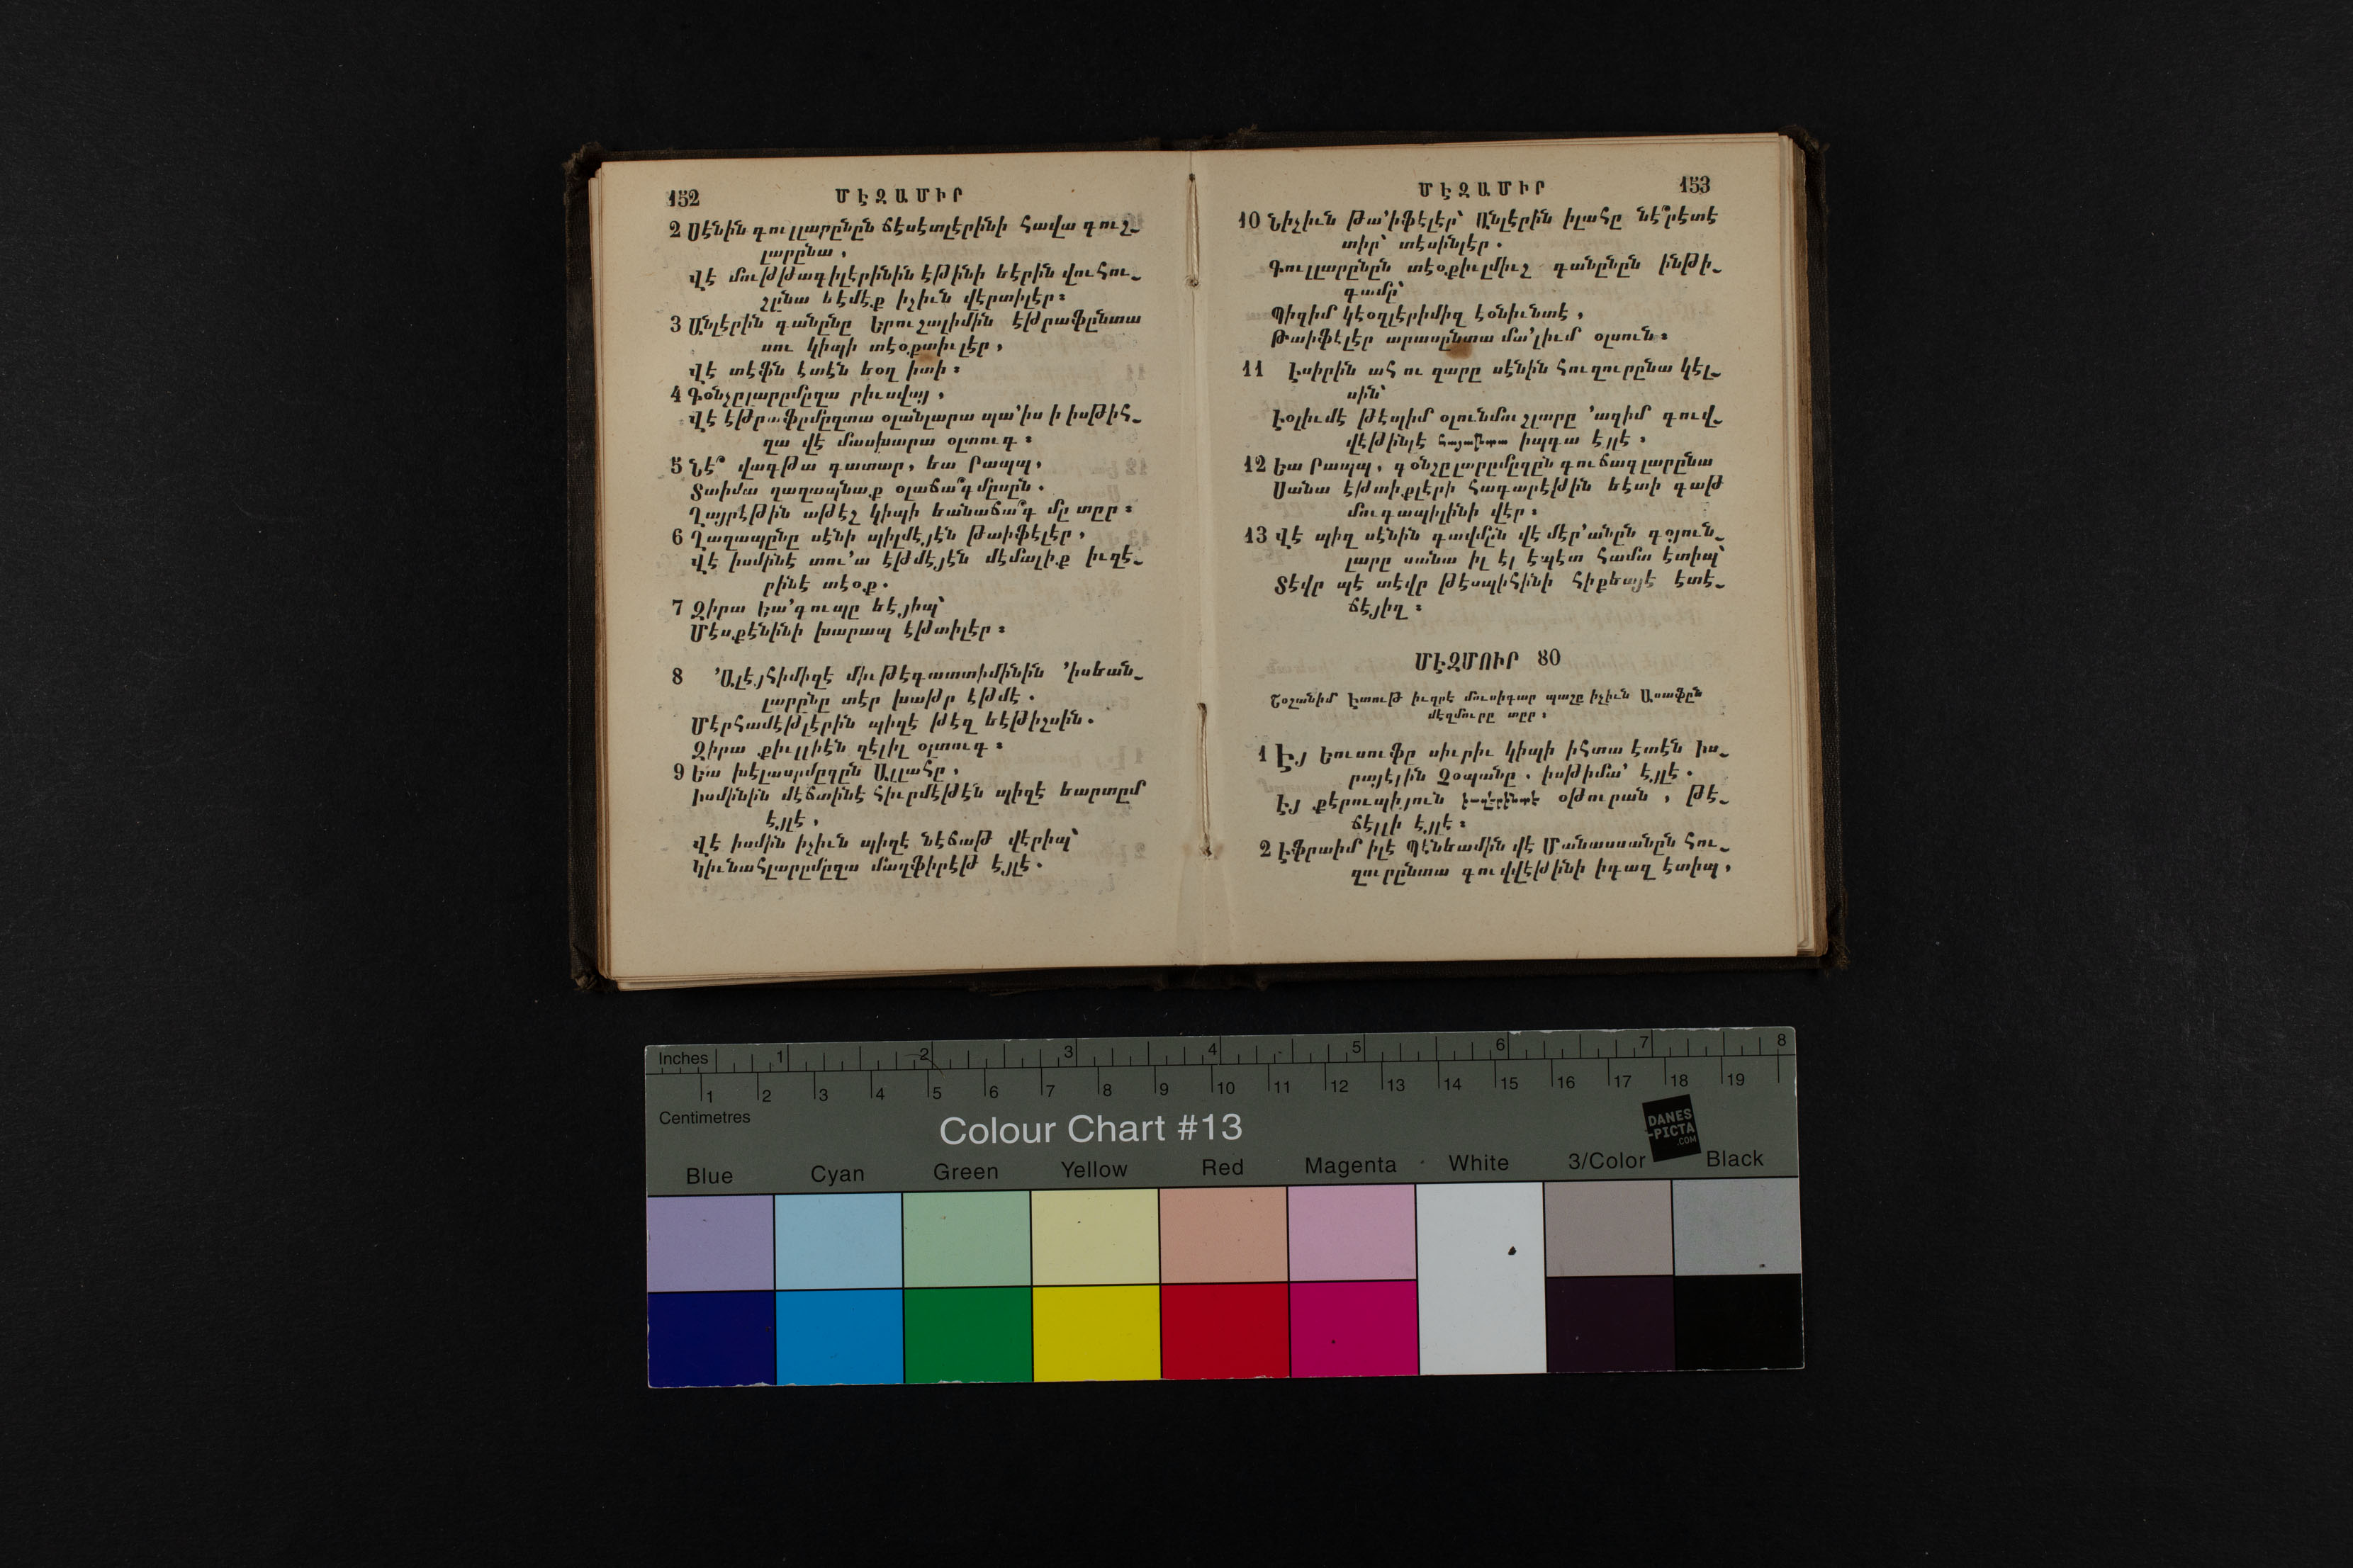 152 ՄԷԶԱՄԻՐ
2 Սէնին գուլլարընըն ճէսէտլէրինի հավա գուշ֊
լարընա ,
Վէ մութթագիլէրինին էթինի եէրին վուհու֊
շընա եէմէք իչիւն վէրտիլէր ։
3 Անլէրին գանընը Երուշալիմին էթրաֆընտա
սու կիպի տէօքտիւլէր ,
Վէ տէֆն էտէն եօղ իտի ։
4 Գօնշըլարըմըզա րիւսվայ ,
Վէ էթրաֆըմըզտա օլանլարա պա՚իս ի իսթիհ֊
զա վէ մասխարա օլտուգ ։
5 Նէ՞ վագթա գատար , եա Րապպ ,
Տաիմա ղաղապնաք օլաճա՞գ մըսըն .
Ղայրէթին աթէշ կիպի եանաճա՞գ մը տըր ։
6 Ղաղապընը սէնի պիլմէյէն թաիֆէլէր ,
Վէ իսմինէ տու՚ա էթմէյէն մէմալիք իւզէ֊
րինէ տէօք .
7 Զիրա Եա՚գուպը եէյիպ՝
Մէսքէնինի խարապ էթտիլէր ։
8 ՚Ալէյհիմիզէ միւթէգատտիմինին ՚իսեան֊
լարընը տէր խաթր էթմէ .
Մէրհամէթլէրին պիզէ թէզ եէթիշսին .
Զիրա քիւլլիէն զէլիլ օլտուգ ։
9 Եա խէլասըմըզըն Ալլահը ,
Իսմինին մէճտինէ հիւրմէթէն պիզէ եարտըմ
էյլէ ,
Վէ իսմին իչիւն պիզէ նէճաթ վէրիպ՝
Կիւնահլարըմըզա մաղֆիրէթ էյլէ .
ՄԷԶԱՄԻՐ 153
10 Նիչիւն թա՚իֆէլէր՝ Անլէրին իլահը նէ՞րէտէ
տիր՝ տէսինլէր .
Գուլլարընըն տէօքիւլմիւշ գանընըն ինթի֊
գամը՝
Պիզիմ կէօզլէրիմիզ էօնիւնտէ ,
Թաիֆէլէր արասընտա մա՚լիւմ օլսուն ։
11 Էսիրին ահ ու զարը սէնին հուզուրընա կէլ֊
սին՝
Էօլիւմէ թէսլիմ օլունմուշլարը ՚ազիմ գուվ֊
վէթինլէ հայաթտա իպգա էյլէ ։
12 Եա Րապպ , գօնշըլարըմըզըն գուճաղլարընա
Սանա էթտիքլէրի հագարէթին եէտի գաթ
մուգապիլինի վէր ։
13 Վէ պիզ սէնին գավմըն վէ մէր՚անըն գօյուն֊
լարը սանա իլ էլ էպէտ համտ էտիպ՝
Տէվր պէ տէվր թէսպիհինի հիքեայէ էտէ֊
ճէյիզ ։
ՄԷԶՄՈՒՐ 80
Շօշանիմ Էտութ իւզրէ մուսիգար պաշը իչիւն Ասաֆըն
մէզմուրը տըր ։
1 Էյ Եուսուֆը սիւրիւ կիպի իհտա էտէն Իս֊
րայէլին Չօպանը . իսթիմա՚ էյլէ .
Էյ քէրուպիյուն իւզէրինտէ օթուրան , թէ֊
ճէլլի էյլէ ։
2 Էֆրաիմ իլէ Պէնեամին վէ Մանասսանըն հու֊
զուրընտա գուվվէթինի իգազ էտիպ ,
Inches 1 2 3 4 5 6 7 8
1 2 3 4 5 6 7 8 9 10 11 12 13 14 15 16 17 18 19
Centimetres
Colour Chart #13
DANES
-PICTA
.COM
Blue Cyan Green Yellow Red Magenta White 3/Color Black